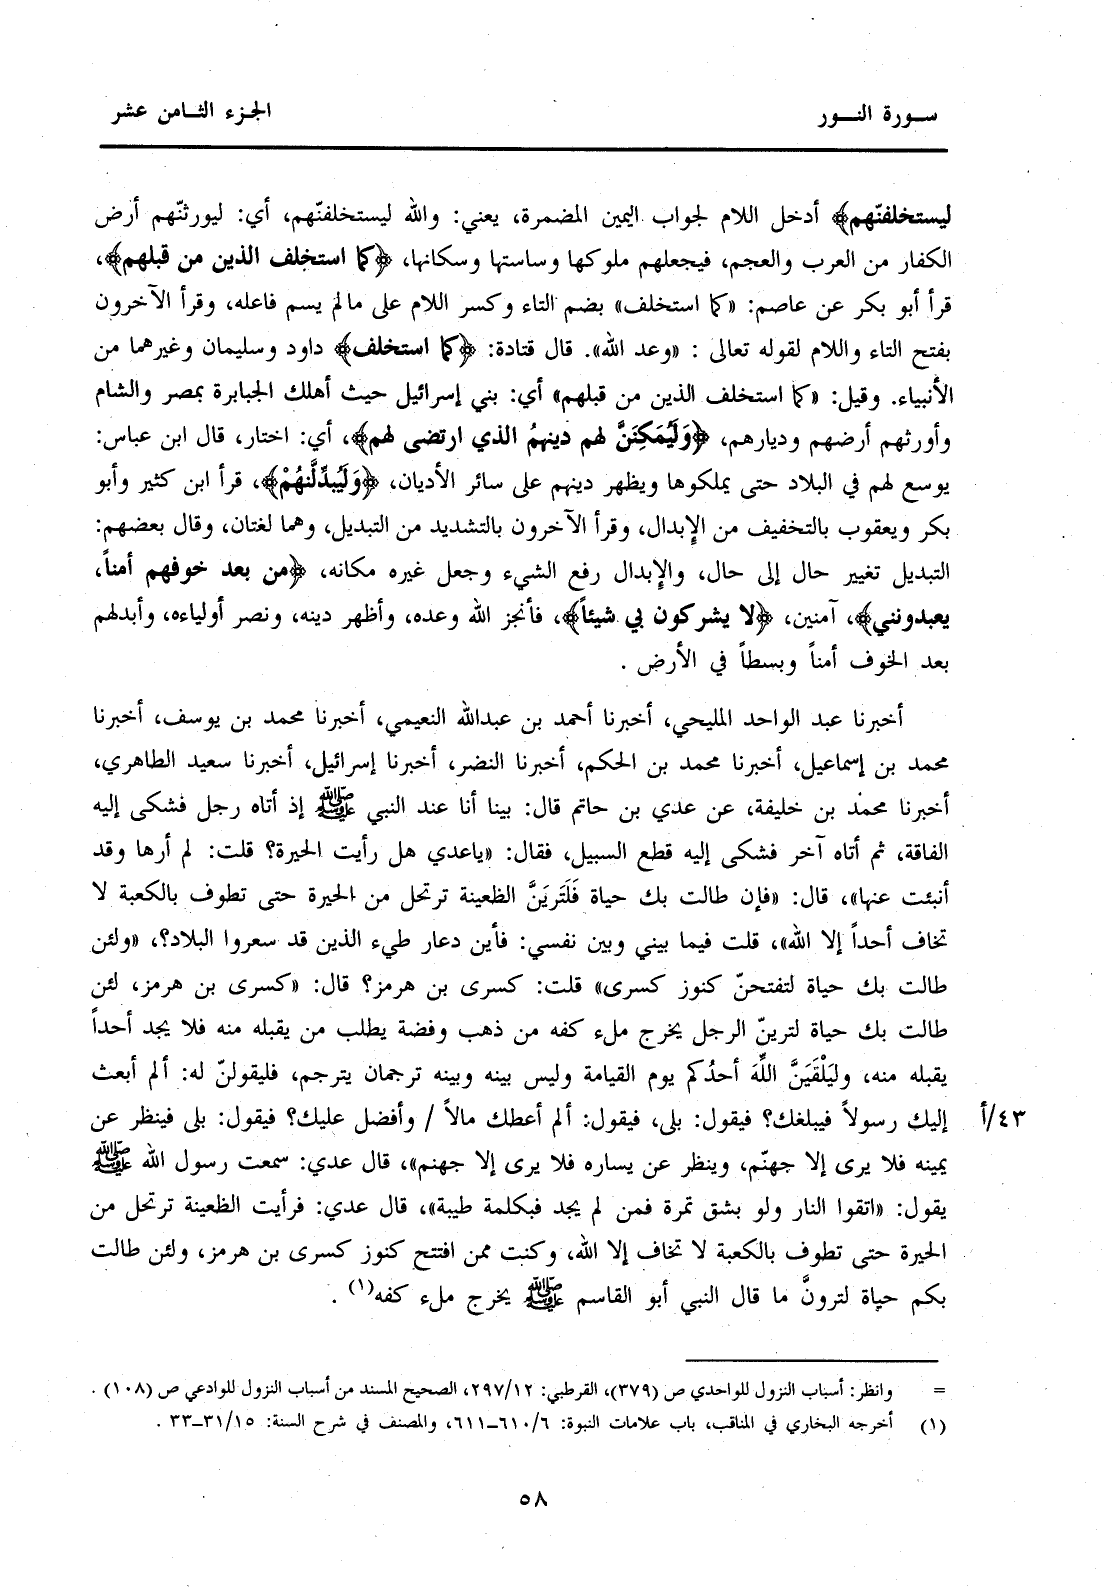 سورة النور
الجزء الثامن عشر
ليستخلفنّهم﴾ أدخل اللام لجواب اليمين المضمرة، يعني: والله ليستخلفنّهم، أي: ليورثنّهم أرض
الكفار من العرب والعجم، فيجعلهم ملوكها وساستها وسكانها، ﴿كما استخلف الذين من قبلهم﴾،
قرأ أبو بكر عن عاصم: «كما استخلف» بضم التاء وكسر اللام على مالم يسم فاعله، وقرأ الآخرون
بفتح التاء واللام لقوله تعالى : «وعد الله». قال قتادة: ﴿كما استخلف﴾ داود وسليمان وغيرهما من
الأنبياء. وقيل: «كما استخلف الذين من قبلهم» أي: بني إسرائيل حيث أهلك الجبابرة بمصر والشام
وأورثهم أرضهم وديارهم، ﴿وَلَيُمَكِنَنَّ لهم دينهمُ الذي ارتضى لهم﴾، أي: اختار، قال ابن عباس:
يوسع لهم في البلاد حتى يملكوها ويظهر دينهم على سائر الأديان، ﴿وَلَيُبدِّلَّنهُمْ﴾، قرأ ابن كثير وأبو
بكر ويعقوب بالتخفيف من الإبدال، وقرأ الآخرون بالتشديد من التبديل، وهما لغتان، وقال بعضهم:
التبديل تغيير حال إلى حال، والإبدال رفع الشيء وجعل غيره مكانه، ﴿من بعد خوفهم أمناً،
يعبدونني﴾، آمنين، ﴿لا يشركون بي شيئاً﴾، فأنجز الله وعده، وأظهر دينه، ونصر أولياءه، وأبدلهم
بعد الخوف أمناً وبسطاً في الأرض .
أخبرنا عبد الواحد المليحي، أخبرنا أحمد بن عبدالله النعيمي، أخبرنا محمد بن يوسف، أخبرنا
محمد بن إسماعيل، أخبرنا محمد بن الحكم، أخبرنا النضر، أخبرنا إسرائيل، أخبرنا سعيد الطاهري،
أخبرنا محمد بن خليفة، عن عدي بن حاتم قال: بينا أنا عند النبي ﷺ إذ أتاه رجل فشكى إليه
الفاقة، ثم أتاه آخر فشكى إليه قطع السبيل، فقال: «ياعدي هل رأيت الحيرة؟ قلت: لم أرها وقد
أنبئت عنها»، قال: «فإن طالت بك حياة فَلَتَريَنَّ الظعينة ترتحل من الحيرة حتى تطوف بالكعبة لا
تخاف أحداً إلا الله»، قلت فيما بيني وبين نفسي: فأين دعار طيء الذين قد سعروا البلاد؟، «ولئن
طالت بك حياة لتفتحنّ كنوز كسرى» قلت: كسرى بن هرمز؟ قال: «كسرى بن هرمز، لئن
طالت بك حياة لترينّ الرجل يخرج ملء كفه من ذهب وفضة يطلب من يقبله منه فلا يجد أحداً
يقبله منه، وليَلْقَيَنَّ اللَّهَ أحدُكم يوم القيامة وليس بينه وبينه ترجمان يترجم، فليقولنّ له: ألم أبعث
إليك رسولاً فيبلغك؟ فيقول: بلى، فيقول: ألم أعطك مالاً / وأفضل عليك؟ فيقول: بلى فينظر عن
٤٣/أ
يمينه فلا يرى إلا جهنّم، وينظر عن يساره فلا يرى إلا جهنم»، قال عدي: سمعت رسول الله ﷺ
يقول: «اتقوا النار ولو بشق تمرة فمن لم يجد فبكلمة طيبة»، قال عدي: فرأيت الظعينة ترتحل من
الحيرة حتى تطوف بالكعبة لا تخاف إلا الله، وكنت ممن افتتح كنوز كسرى بن هرمز، ولئن طالت
بكم حياة لترونَّ ما قال النبي أبو القاسم ﷺ يخرج ملء كفه(١) .
= وانظر: أسباب النزول للواحدي ص (٣٧٩)، القرطبي: ٢٩٧/١٢، الصحيح المسند من أسباب النزول للوادعي ص (١٠٨) .
(١) أخرجه البخاري في المناقب، باب علامات النبوة: ٦/ ٦١٠ـ٦١١، والمصنف في شرح السنة: ١٥/ ٣١ـ٣٣ .
٥٨